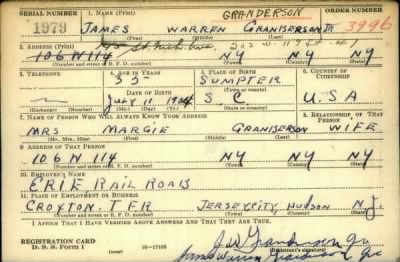 SERIAL NUMBER 1. NAME (Print) GRANDERSON ORDER NUMBER
1979 JAMES WARREN GRANISERSON JR 3996
(First) (Middle) (Last)
2. ADDRESS (Print)
106 N 114 NY NY
(Number and street or R. F. D. number) (Town) (County) (State)
3. TELEPHONE 4. AGE IN YEARS 5. PLACE OF BIRTH 6. COUNTRY OF CITIZENSHIP
35 SUMPTER
DATE OF BIRTH (Town or county)
JULY 11 1904 S C U.S.A
(Exchange) (Number) (Mo.) (Day) (Yr.) (State or country)
7. NAME OF PERSON WHO WILL ALWAYS KNOW YOUR ADDRESS 8. RELATIONSHIP OF THAT PERSON
MRS MARGIE GRANISERSON WIFE
(Mr., Mrs., Miss) (First) (Middle) (Last)
9. ADDRESS OF THAT PERSON
106 N 114 NY NY NY
(Number and street or R. F. D. number) (Town) (County) (State)
10. EMPLOYER'S NAME
ERIE RAIL ROADS
11. PLACE OF EMPLOYMENT OR BUSINESS
CROXTON. TER JERSEY CITY, HUDSON N.J.
(Number and street or R. F. D. number) (Town) (County) (State)
I AFFIRM THAT I HAVE VERIFIED ABOVE ANSWERS AND THAT THEY ARE TRUE.
REGISTRATION CARD
D. S. S. Form 1 16—17105 (Registrant's signature)